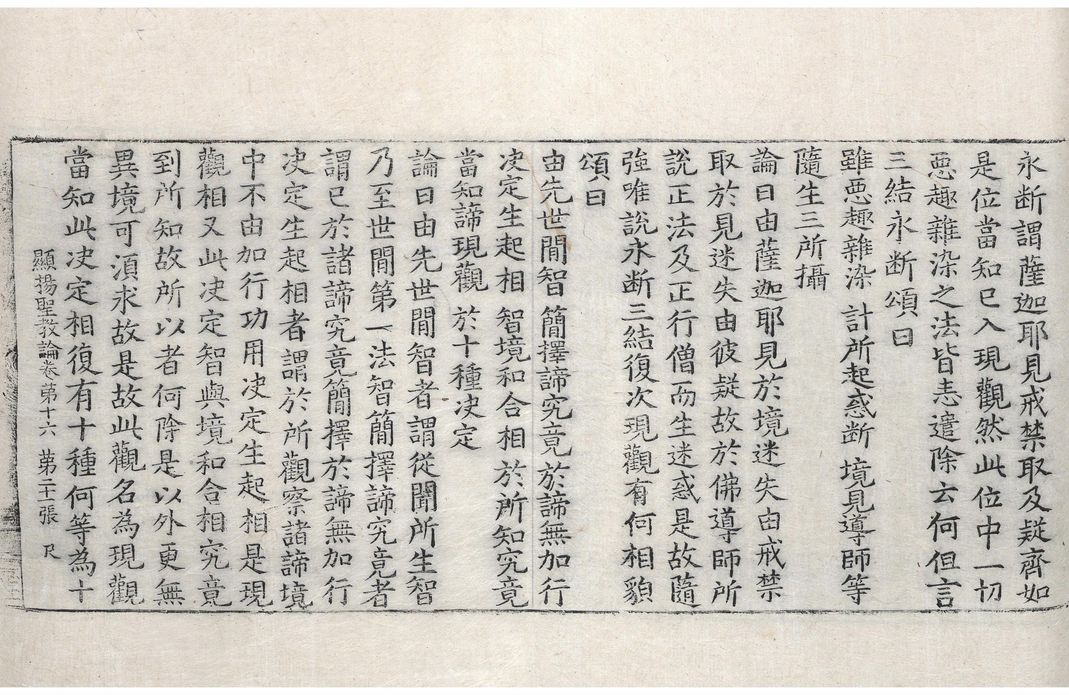 永断謂薩迦耶見戒禁取及疑齊如
是位當知已入現觀然此位中一切
惡趣雜染之法皆悉遣除云何但言
三結永断頌曰
雖惡趣雜染 計所起惑断 境見導師等
隨生三所攝
論曰由薩迦耶見於境迷失由戒禁
取於見迷失由彼疑故於佛導師所
說正法及正行僧而生迷惑是故隨
強唯說永断三結復次現觀有何相貌
頌曰
由先世閒智 簡擇諦究竟於諦無加行
决定生起相 智境和合相於所知究竟
當知諦現觀 於十種决定
論曰由先世閒智者謂從聞所生智
乃至世閒第一法智簡擇諦究竟者
謂已於諸諦究竟簡擇於諦無加行
决定生起相者謂於所觀察諸諦境
中不由加行功用决定生起相是現
觀相又此决定智與境和合相究竟
到所知故所以者何除是以外更無
異境可湏求故是故此觀名為現觀
當知此决定相復有十種何等為十
顯揚聖教論卷第十六 第二十張 尺